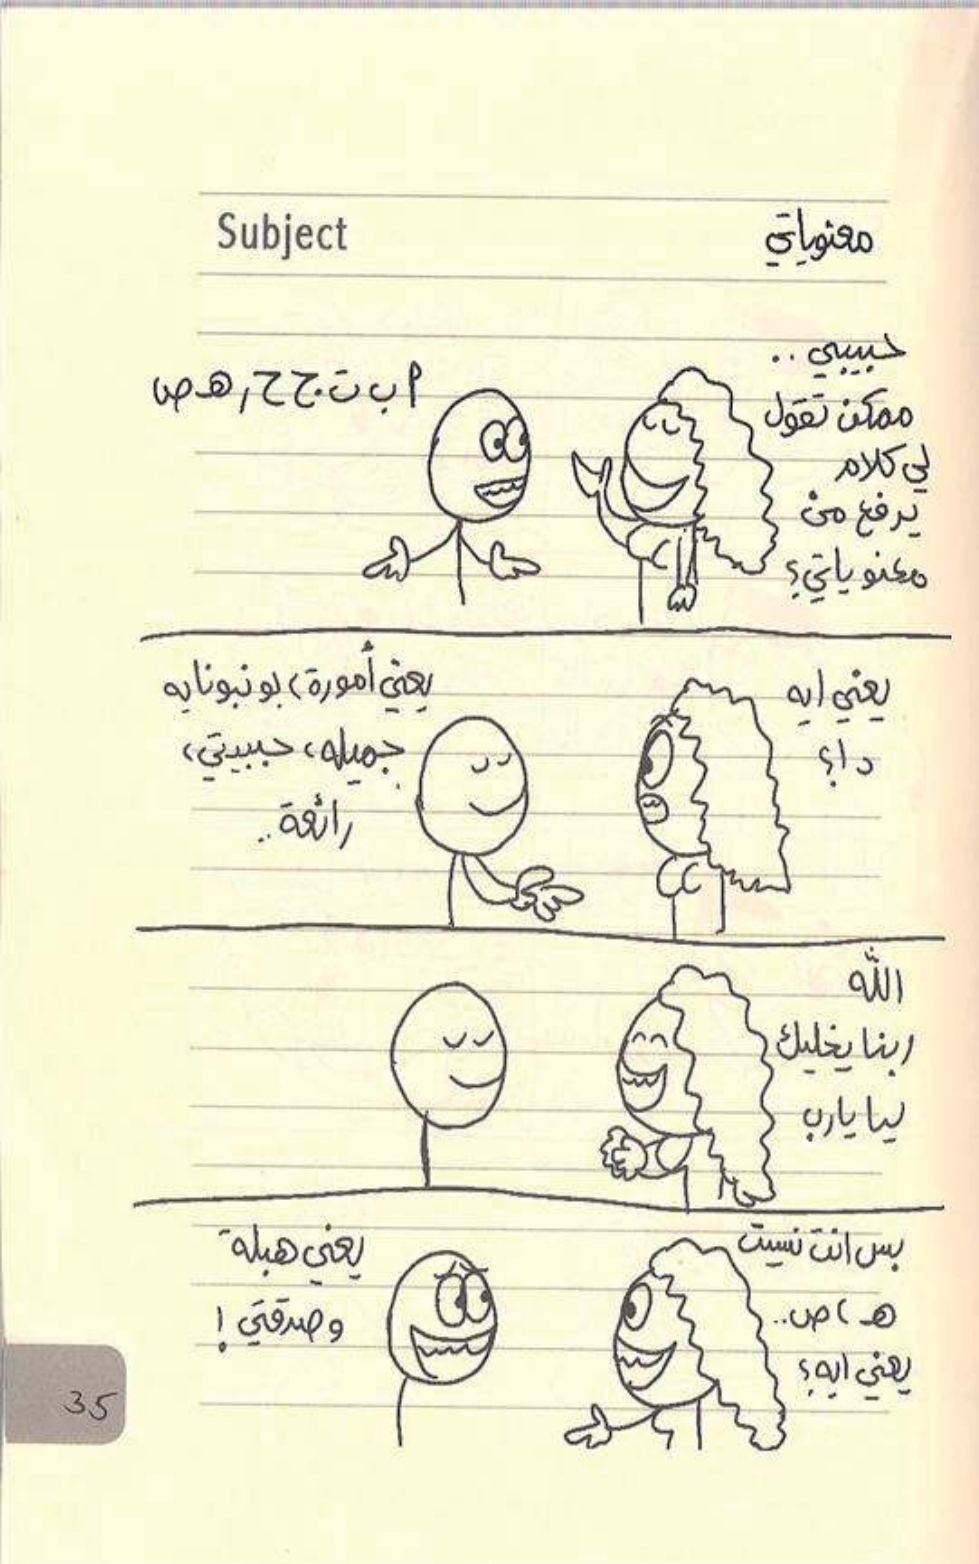 Subject
معنوياتي
حبيبي ..
ممكن تقول
لي كلام
يرفع من
معنوياتي؟
أ ب ت ج ح ر هـ ص
يعني ايه
دا؟
يعني أمورة، بونبونايه
جميله، حبيبتي،
رائعة ..
الله
ربنا يخليك
ليا يارب
بس انت نسيت
هـ، ص ..
يعني ايه؟
يعني هبلة
وصدقتي!
35